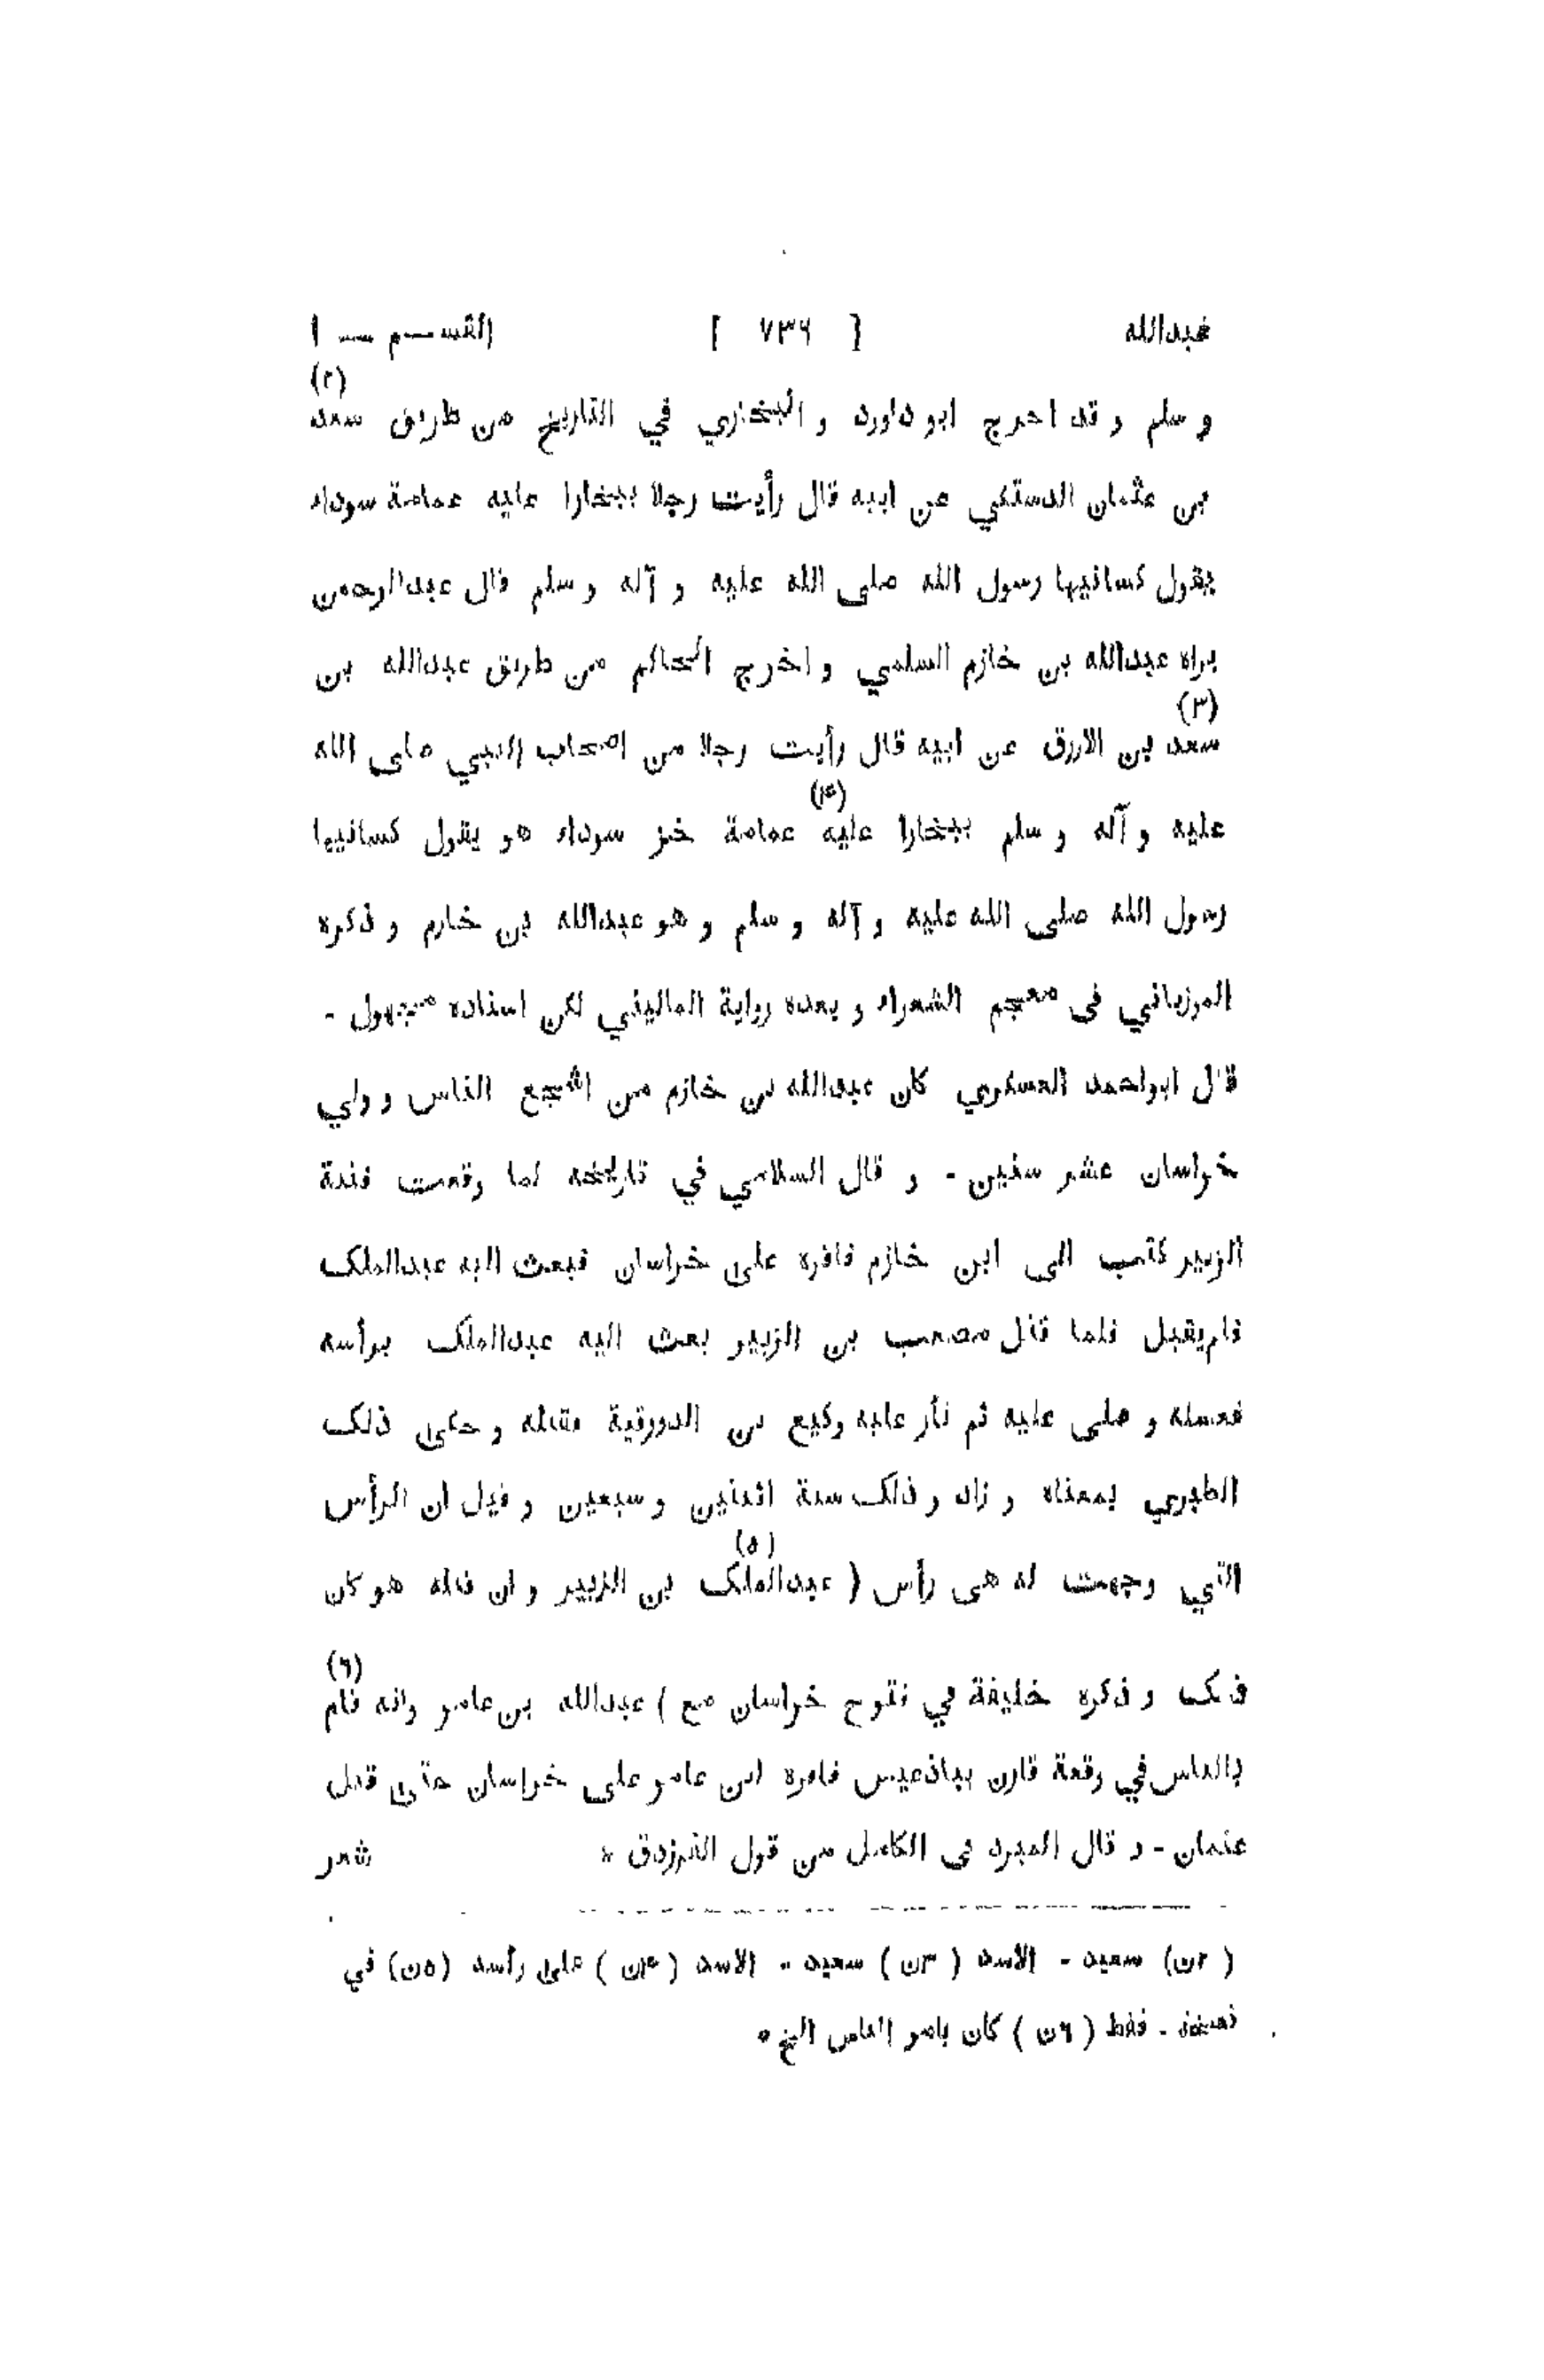 عبدالله [ ٧٣٦ ] القسم — ١
و سلم و قد اخرج ابو داود و البخاري في التاريخ من طريق سعد (٢)
بن عثمان الدستكي عن ابيه قال رأيت رجلا ببخارا عليه عمامة سوداء
يقول كسانيها رسول الله صلى الله عليه و آله و سلم قال عبدالرحمن
يراه عبدالله بن خازم السلمي و اخرج الحاكم من طريق عبدالله بن
سعد (٣) بن الازرق عن ابيه قال رأيت رجلا من اصحاب النبي صلى الله
عليه و آله و سلم ببخارا عليه (۴) عمامة خز سوداء هو يقول كسانيها
رسول الله صلى الله عليه و آله و سلم و هو عبدالله بن خازم و ذكره
المرزباني فى معجم الشعراء و بعده رواية الماليني لكن اسناده مجهول -
قال ابواحمد العسكري كان عبدالله بن خازم من اشجع الناس و ولي
خراسان عشر سنين - و قال السلامي في تاريخه لما وقعت فتنة
الزبير كتب الى ابن خازم فاقره على خراسان فبعث اليه عبدالملك
فلم يقبل فلما قتل مصعب بن الزبير بعث اليه عبدالملك برأسه
فغسله و صلى عليه ثم ثار عليه وكيع بن الدورقية فقتله و حكى ذلك
الطبري بمعناه و زاد و ذلك سنة اثنتين و سبعين و قيل ان الرأس
التي وجهت له هى رأس ( عبدالملك (٥) بن الزبير و ان قتله هو كان
و ذكره خليفة في فتوح خراسان مع ) عبدالله بن عامر وانه قام (٦)
بالناس في وقعة قارن بباذغيس فاقره ابن عامر على خراسان حتى قتل
عثمان - و قال المبرد فى الكامل من قول الفرزدق * شعر
( ٢ن) سعيد - الاسد ( ٣ن ) سعيد - الاسد ( ۴ن ) على رأسه (٥ن) في
نسخة - فقط ( ٦ن ) كان بامر الناس الخ *